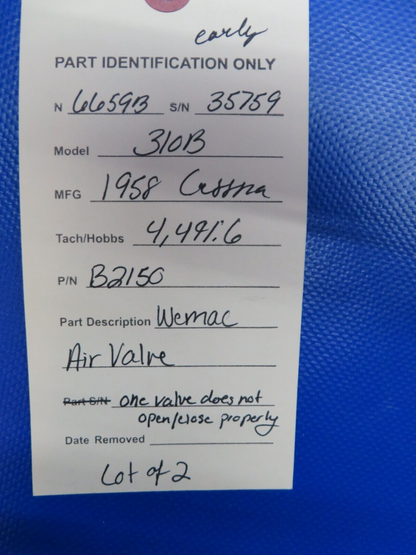 early
PART IDENTIFICATION ONLY
N 6659B S/N 35759
Model 310B
MFG 1958 Cessna
Tach/Hobbs 4,491.6
P/N B2150
Part Description Wemac
Air Valve
Part S/N one valve does not
open/close properly
Date Removed
Lot of 2